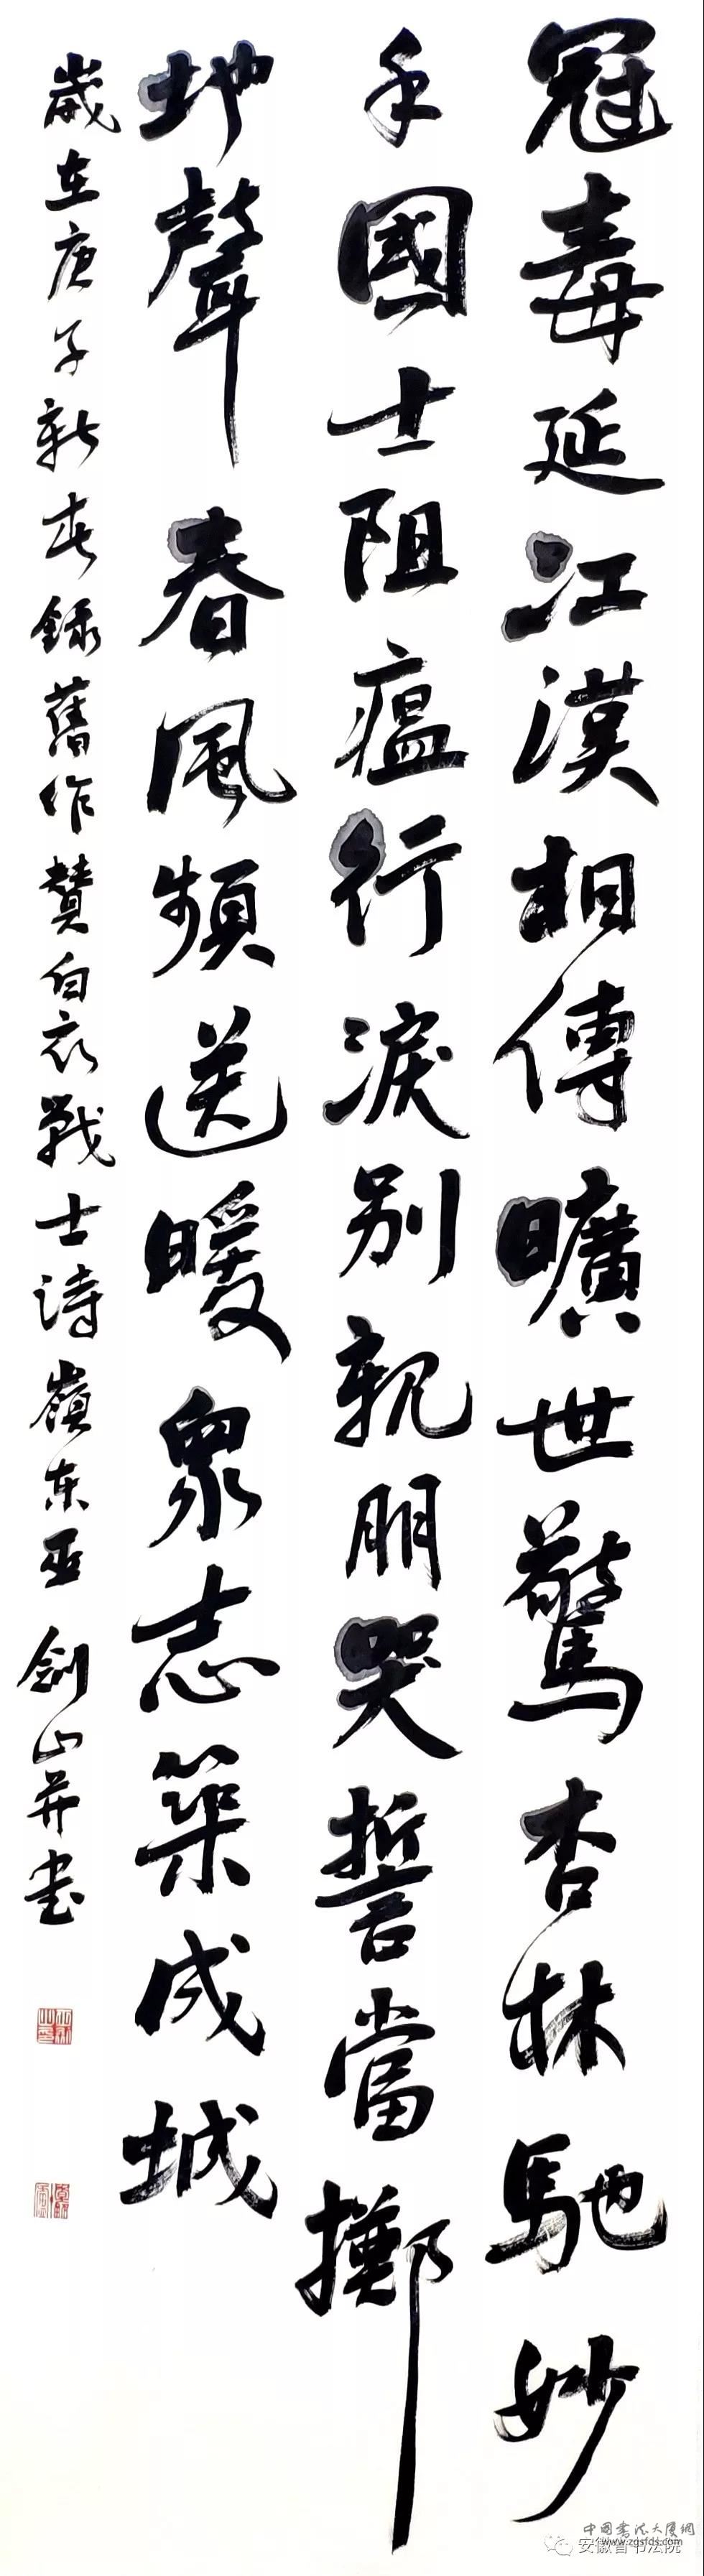 冠毒延江漢相傳曠世驚杏林馳妙
手國士阻瘟行淚别親朋哭誓當擲
地聲春風頻送暖眾志築成城
歲在庚子新春錄舊作贊白衣戰士诗嶺东巫剑山并书
中國書法大厦網
www.zgsfds.com
安徽省书法院